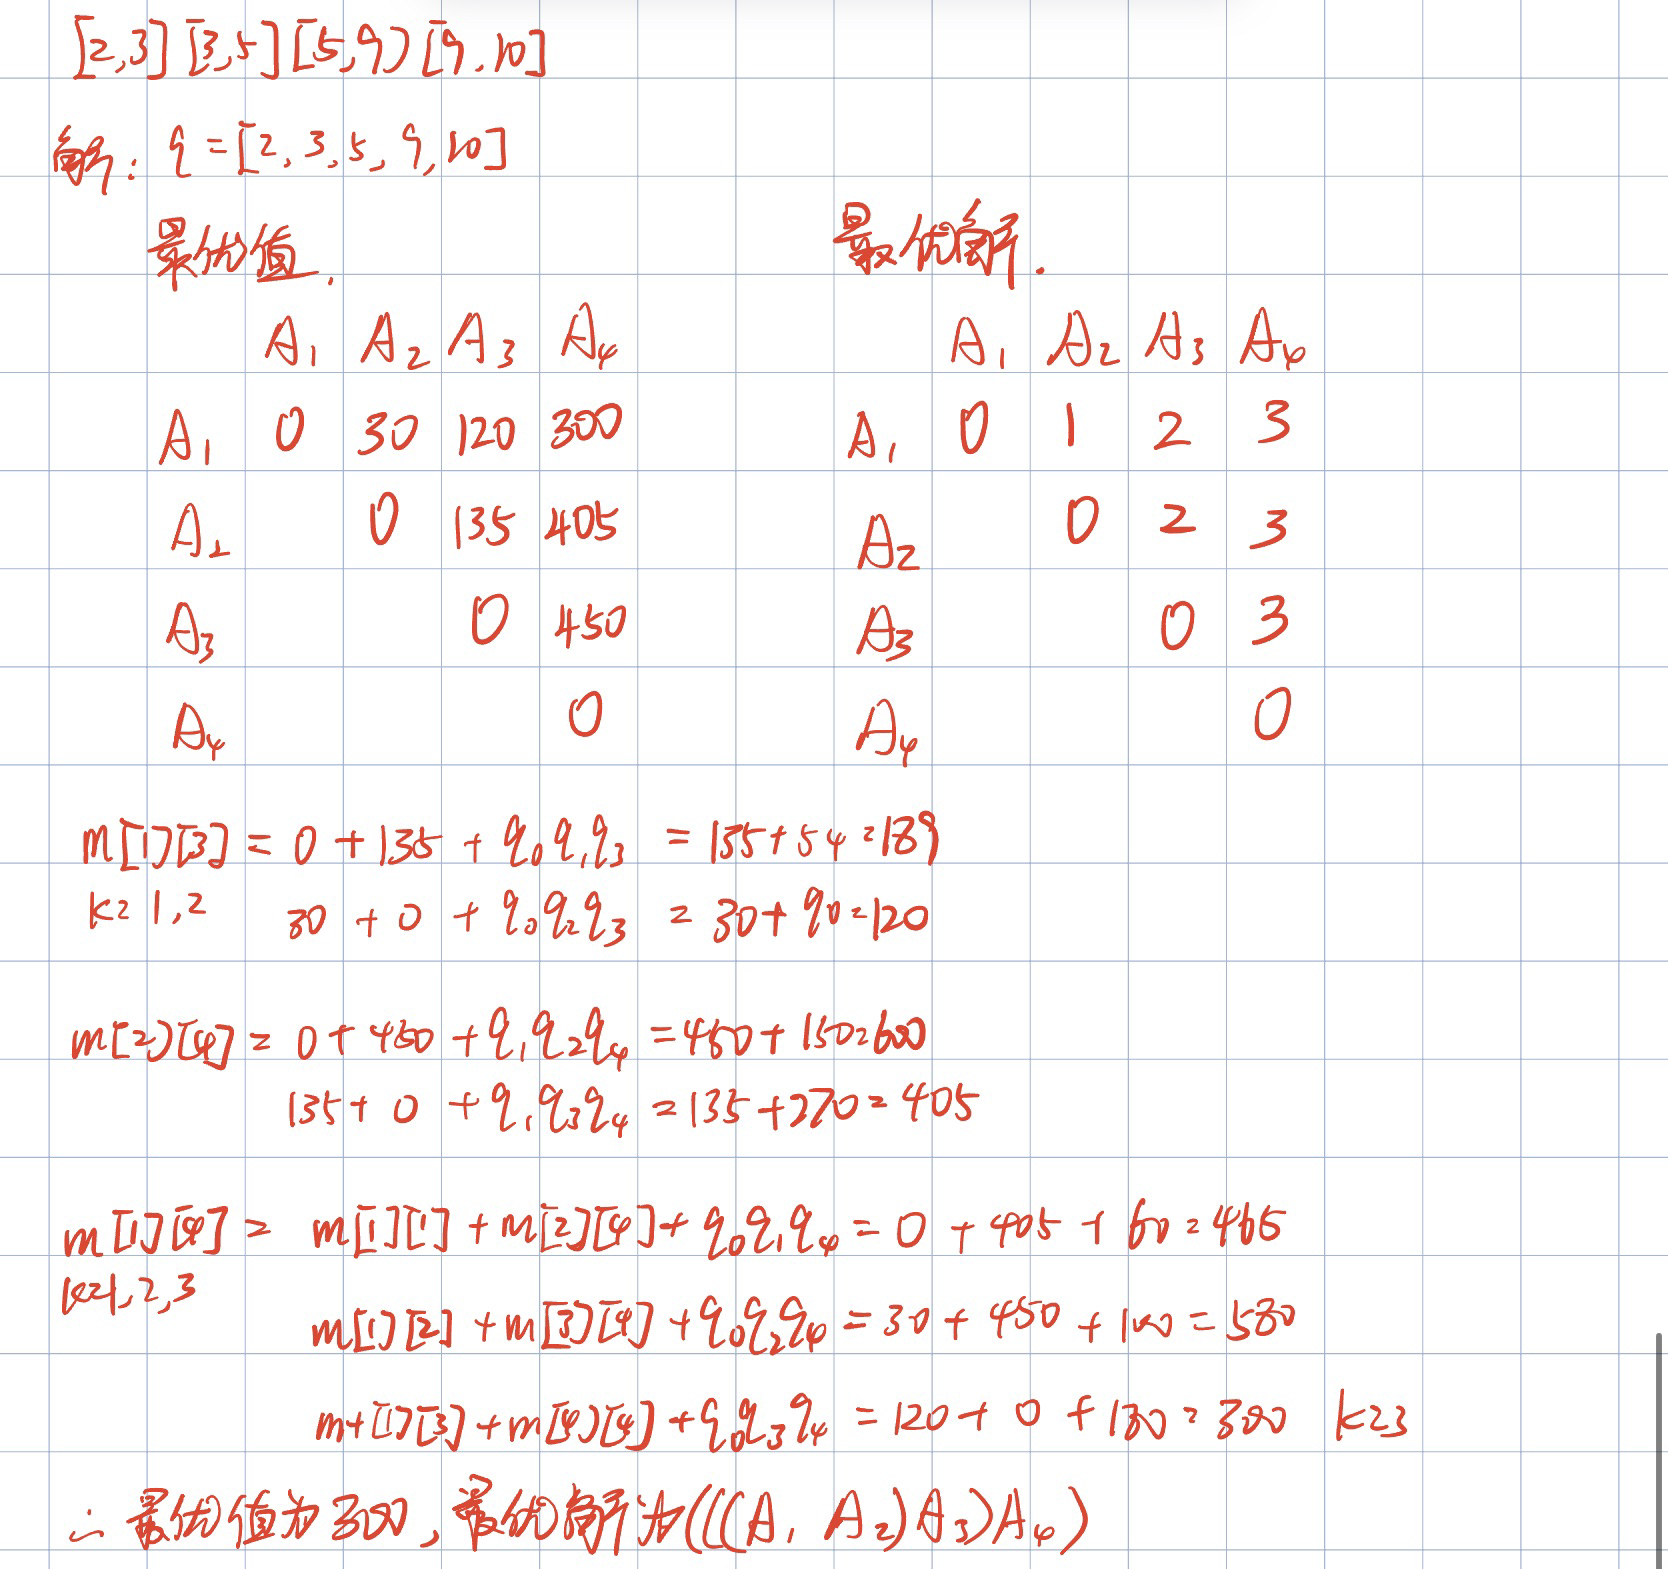 [2,3] [3,5] [5,9) [9,10]
解: q = [2, 3, 5, 9, 10]
最优值. 最优解.
A1 A2 A3 A4 A1 A2 A3 A4
A1 0 30 120 300 A1 0 1 2 3
A2 0 135 405 A2 0 2 3
A3 0 450 A3 0 3
A4 0 A4 0
m[1][3] = 0 + 135 + q0q1q3 = 135+54=189
k=1,2 30 + 0 + q0q2q3 = 30+90=120
m[2][4] = 0 + 450 + q1q2q4 = 450+150=600
135 + 0 + q1q3q4 = 135+270=405
m[1][4] = m[1][1] + m[2][4] + q0q1q4 = 0 + 405 + 60 = 465
k=1,2,3
m[1][2] + m[3][4] + q0q2q4 = 30 + 450 + 100 = 580
m+[1][3] + m[4][4] + q0q3q4 = 120 + 0 + 180 = 300 k=3
∴ 最优值为300, 最优解为(((A1 A2)A3)A4)